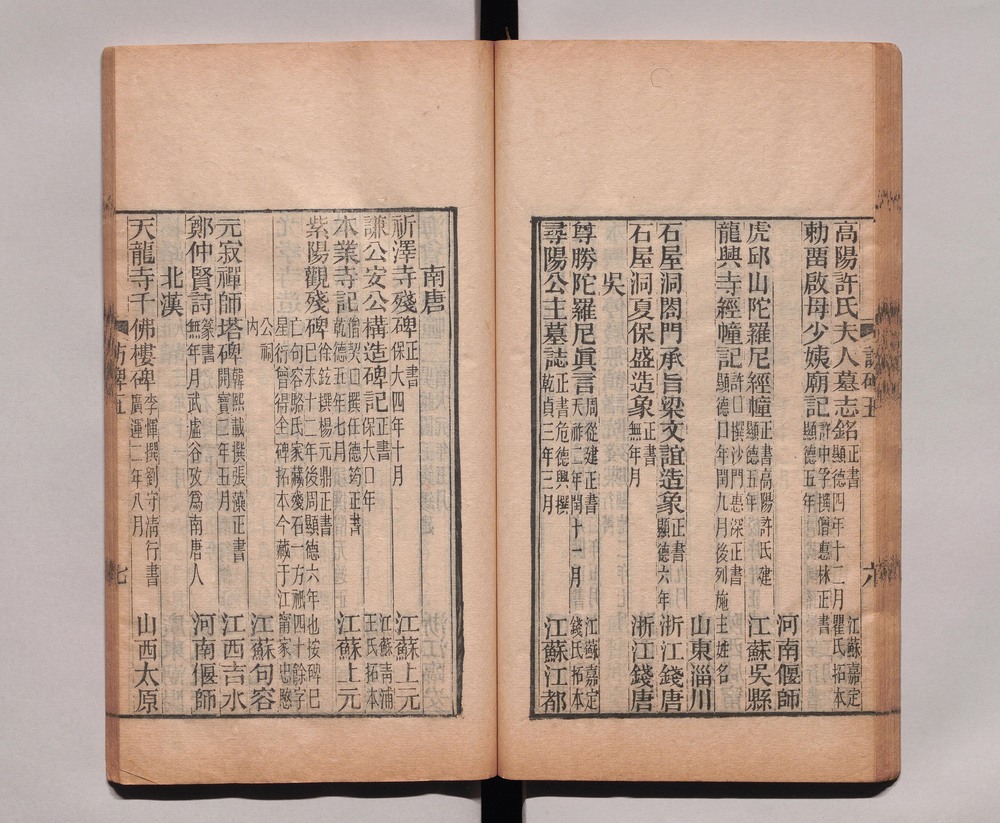 高陽許氏夫人墓志銘 正書 顯德四年十二月 江蘇嘉定瞿氏拓本
勅留啟母少姨廟記 許中孚撰僧惠林正書 顯德五年 河南偃師
虎邱山陀羅尼經幢 正書高陽許氏建 顯德五年 江蘇吳縣
龍興寺經幢記 許口撰沙門惠深正書 顯德口年閏九月後列施主姓名 山東淄川
石屋洞閤門承旨梁文誼造象 正書 顯德六年 浙江錢唐
石屋洞夏保盛造象 正書 無年月 浙江錢唐
吳
尊勝陀羅尼眞言 周從建正書 天祚三年閏十一月 江蘇嘉定錢氏拓本
尋陽公主墓誌 正書危德興撰 乾貞三年三月 江蘇江都
訪碑五
六
南唐
祈澤寺殘碑 正書 保大四年十月 江蘇上元
謙公安公構造碑記 正書 保大口年 江蘇青浦王氏拓本
本業寺記 僧契口撰任德筠正書 乾德五年七月 江蘇上元
紫陽觀殘碑 徐鉉撰楊元鼎正書 已未十二年後周顯德六年也按碑已
亡句容駱氏家藏殘石一方祇四十餘字
星衍曾得全碑拓本今藏于江甯家忠愍
公祠內 江蘇句容
元寂禪師塔碑 韓熙載撰張藻正書 開寶二年五月 江西吉水
鄭仲賢詩 篆書 無年月武虛谷攷爲南唐人 河南偃師
北漢
天龍寺千佛樓碑 李惲撰劉守清行書 廣運二年八月 山西太原
訪碑五
七